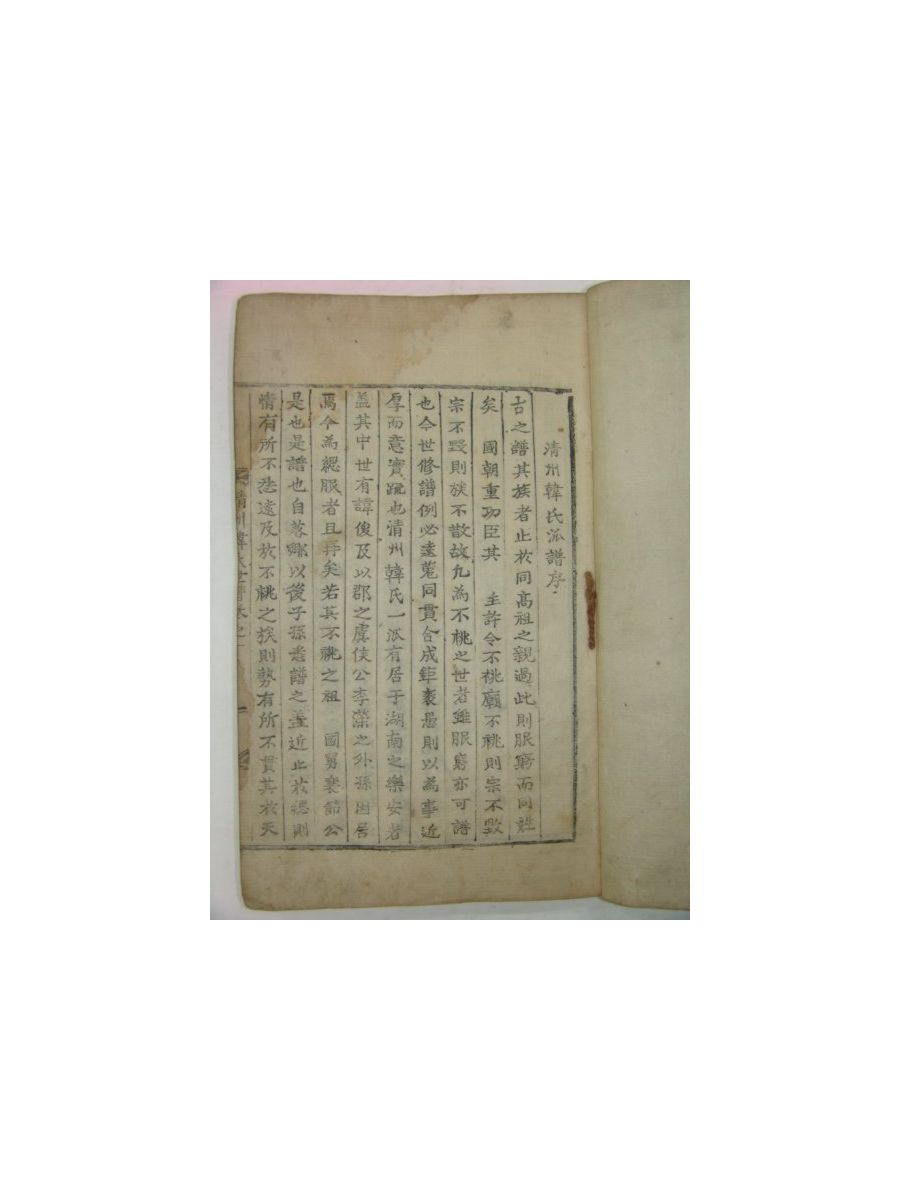 清州韓氏派譜序
古之譜其族者止於同高祖之親過此則服窮而同姓
矣 國朝重功臣其 主許令不祧廟不祧則宗不毀
宗不毀則族不散故凡為不祧之世者雖服窮亦可譜
也今世修譜例必遠蒐同貫合成鉅袠愚則以為事近
厚而意實疏也清州韓氏一派有居于湖南之樂安者
盖其中世有諱俊及以郡之虞侯公李蕖之外孫因居
焉今為緦服者且再矣若其不祧之祖 國舅襄節公
是也是譜也自襄節以後子孫悉譜之盖近止於緦則
情有所不忍遠及於不祧之族則勢有所不貫其於天
清州韓氏世譜卷之一